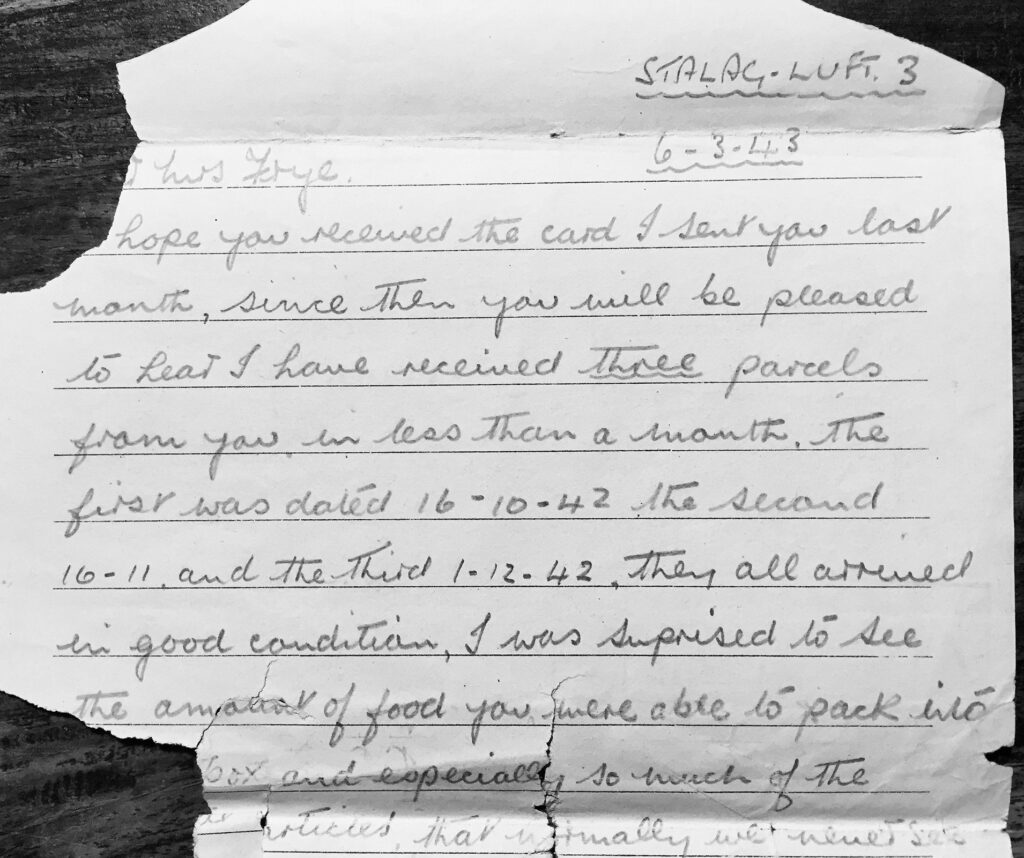 STALAG-LUFT. 3
6-3-43
Mrs Frye.
hope you received the card I sent you last
month, since then you will be pleased
to hear I have received three parcels
from you in less than a month, the
first was dated 16-10-42 the second
16-11, and the third 1-12-42, they all arrived
in good condition, I was suprised to see
the amount of food you were able to pack into
box and especially so much of the
articles, that normally we never see